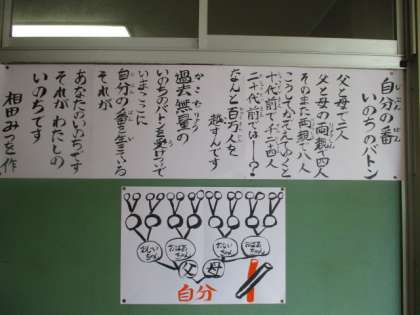 自分の番
いのちのバトン
父と母で二人
父と母の両親で四人
そのまた両親で八人
こうしてかぞえてゆくと
十代前で、千二十四人
二十代前では―?
なんと百万人を
越すんです
過去無量の
いのちのバトンを受けついで
いまここに
自分の番を生きている
それが
あなたのいのちです
それがわたしの
いのちです
相田みつを 作
おじいちゃん
おばあちゃん
おじいちゃん
おばあちゃん
父
母
自分